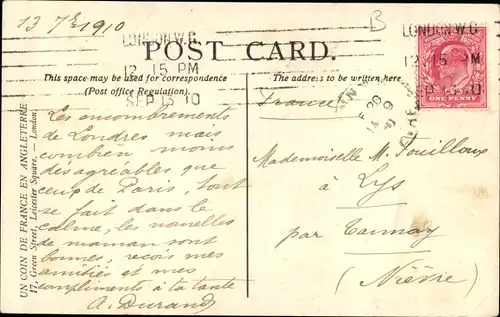 13 7bre 1910
B
LONDON.W.C.
12 15 PM
SEP 13 10
LONDON.W.C.
12 15 PM
SEP 13 10
ONE PENNY
POST CARD.
This space may be used for correspondence
(Post office Regulation).
The address to be written here.
France
UN COIN DE FRANCE EN ANGLETERRE
17, Green Street, Leicester Square. — London.
Les encombrements
de Londres mais
combien moins
désagréables que
ceux de Paris, tout
se fait dans le
calme, les nouvelles
de maman sont
bonnes, reçois mes
amitiés et mes
compliments à ta tante
A. Durand
Mademoiselle M. Touilloux
à
Lys
par Tannay
(Nièvre)